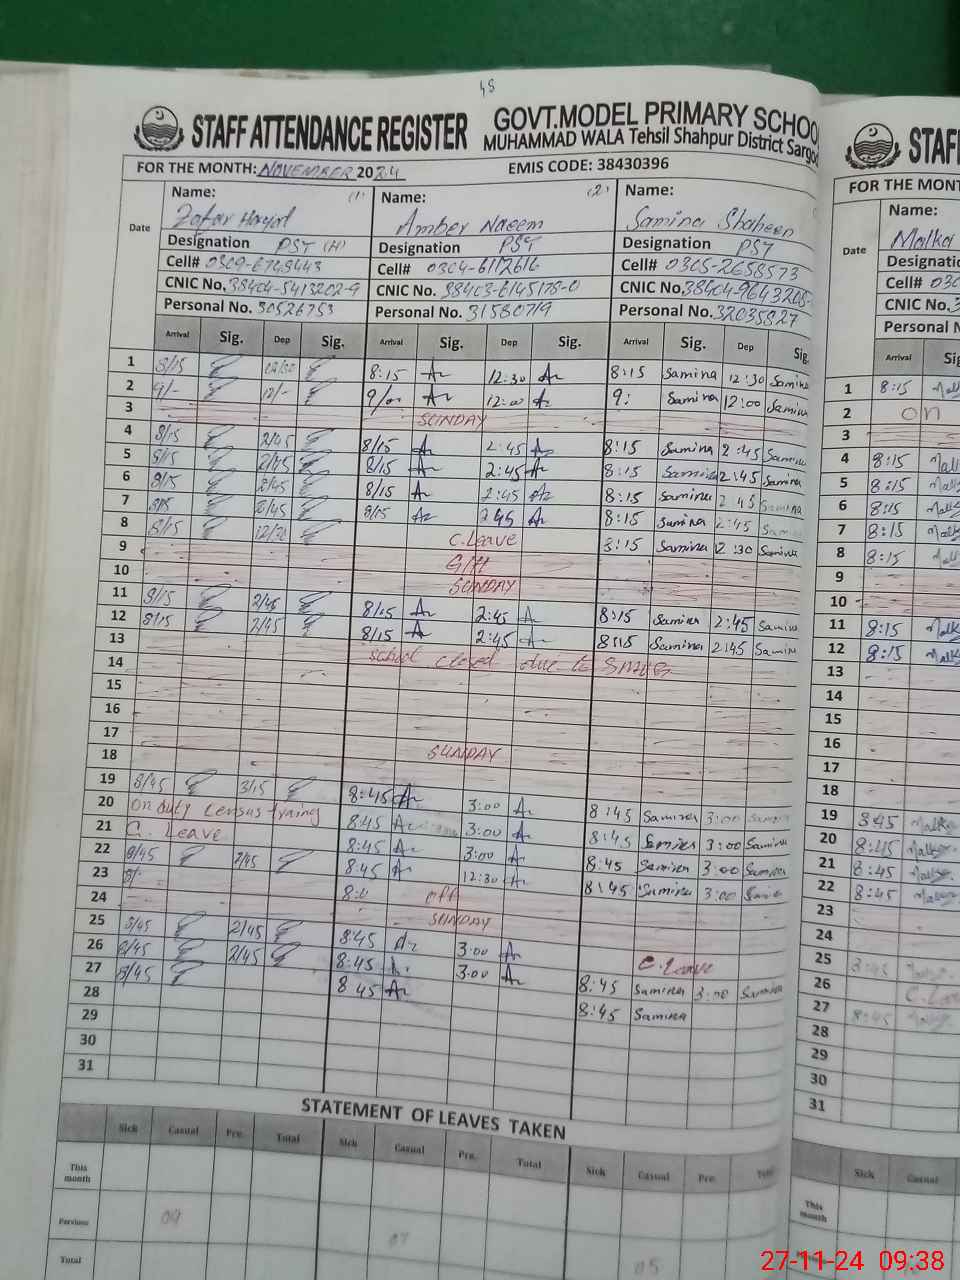 48
STAFF ATTENDANCE REGISTER
GOVT.MODEL PRIMARY SCHOO
MUHAMMAD WALA Tehsil Shahpur District Sargo
FOR THE MONTH: NOVEMBER 2024
EMIS CODE: 38430396
Date
Name: (1)
Zafar Hayat
Designation PST (H)
Cell# 0309-6749443
CNIC No. 38404-5413202-9
Personal No. 30526753
Name: (2)
Amber Naeem
Designation PST
Cell# 0304-6112616
CNIC No. 38403-6145178-0
Personal No. 31580719
Name:
Samina Shaheen
Designation PST
Cell# 0305-2658573
CNIC No. 38404-9643208-
Personal No. 32035827
Arrival Sig. Dep Sig. Arrival Sig. Dep Sig. Arrival Sig. Dep Sig.
1 8/15 12/30 8:15 Ar 12:30 Ar 8:15 Samina 12:30 Samina
2 9/- 12/- 9/00 Ar 12:00 Ar 9: Samina 12:00 Samina
3 SUNDAY
4 8/15 2/45 8/15 Ar 2:45 Ar 8:15 Samina 2:45 Samina
5 8/15 2/45 8/15 Ar 2:45 Ar 8:15 Samina 2:45 Samina
6 8/15 2/45 8/15 Ar 2:45 Ar 8:15 Samina 2:45 Samina
7 8/15 2/45 8/15 Ar 2:45 Ar 8:15 Samina 2:45 Samina
8 8/15 12/30 C.Leave 8:15 Samina 12:30 Samina
9 G/H
10 SUNDAY
11 8/15 2/45 8/15 Ar 2:45 Ar 8:15 Samina 2:45 Samina
12 8/15 2/45 8/15 Ar 2:45 Ar 8:15 Samina 2:45 Samina
13 School closed due to SMOG
14
15
16
17 SUNDAY
18
19 8/45 3/15 8:45 Ar 3:00 Ar 8:45 Samina 3:00 Samina
20 On duty Census traning 8:45 Ar 3:00 Ar 8:45 Samina 3:00 Samina
21 C. Leave 8:45 Ar 3:00 Ar 8:45 Samina 3:00 Samina
22 8/45 2/45 8:45 Ar 12:30 Ar 8:45 Samina 3:00 Samina
23 8/- 8:0 off
24 SUNDAY
25 8/45 2/45 8:45 Ar 3:00 Ar C.Leave
26 8/45 2/45 8:45 Ar 3:00 Ar 8:45 Samina 3:00 Samina
27 8/45 8:45 Ar 8:45 Samina
28
29
30
31
STATEMENT OF LEAVES TAKEN
Sick Casual Pre. Total Sick Casual Pre. Total Sick Casual Pre. Total
This month
Pervious 09 07
Total 05
STAF
FOR THE MONT
Date
Name:
Malka
Designatio
Cell# 030
CNIC No. 3
Personal N
Arrival Sig
1 8:15
2 on
3
4 8:15
5 8:15
6 8:15
7 8:15
8 8:15
9
10
11 8:15
12 8:15
13
14
15
16
17
18
19 8:45
20 8:45
21 8:45
22 8:45
23
24
25 8:45
26 C.Lea
27 8:45
28
29
30
31
Sick Casual
This month
27-11-24 09:38